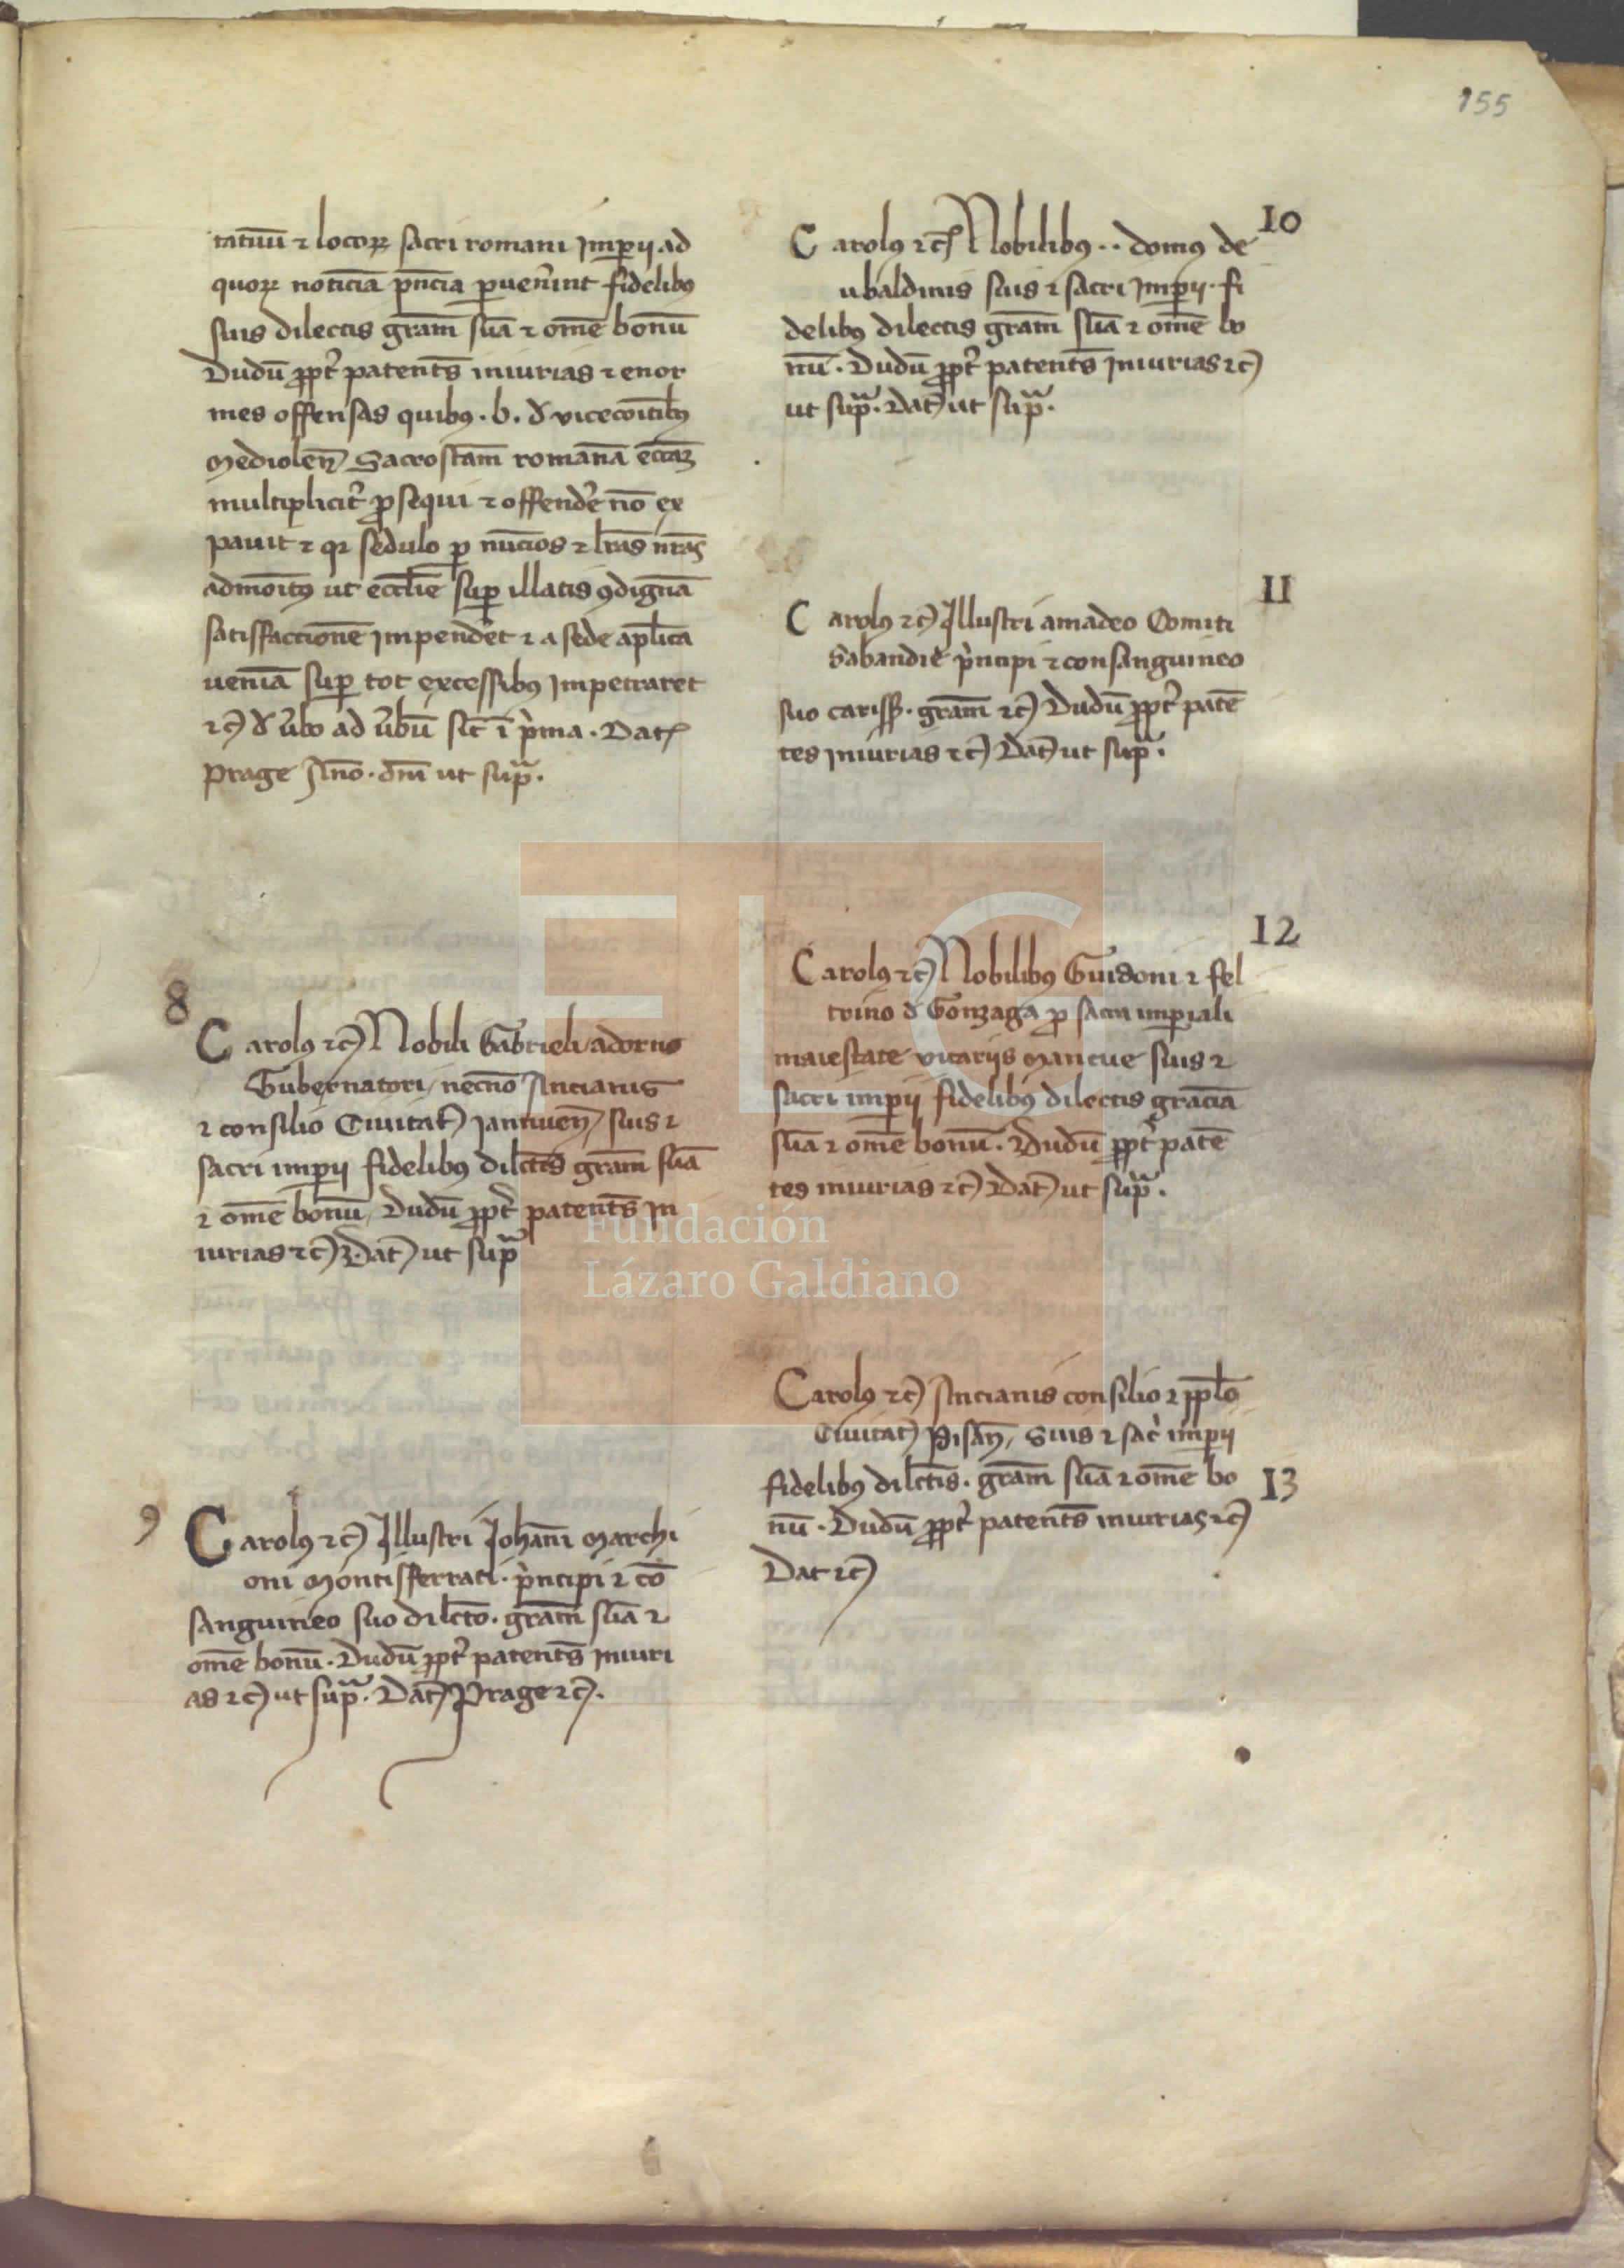 155
tatuū ⁊ locoꝝ sacri romani Imꝑij ad
quoꝝ noticiā pn̄cia ꝑuen̄int fidelibꝰ
suis dilectis gram̄ suā ⁊ om̄e bonū
Dudū ꝓpt̉ patent̄s iniurias ⁊ enor
mes offensas quibꝰ . b . đ vicecoītibꝰ
Mediolen̄ Sacrosc̄am romanā ecc̄iaꝫ
multiplicit̉ ꝓsequi ⁊ offend̉e nō ex
pauit ⁊ qꝛ sedulo ꝑ nūcios ⁊ lr̄as nr̄as
admoītꝰ ut eccl̄ie suꝑ illatis ꝯdignā
satisffaccionē Impend̉et ⁊ a sede apl̄ica
ueniā suꝑ tot excessibꝰ Impetraret
⁊c̄ đ v̉bo ad v̉bū sic̄ ī p̉ma . Dat̄
Prage An̄o . dn̄i ut sup̄ᵃ .
8
Carolꝰ ⁊c̄ Nobili Gabrieli adorno
Gubernatori / necnō Ancianis
⁊ consilio Ciuitat̄ Januen̄ / suis ⁊
sacri imꝑij fidelibꝰ dilc̄tis gram̄ suā
⁊ om̄e bonū / Dudū ꝓpt̉ patent̄s in
iurias ⁊c̄ Dat̄ ut sup̄ᵃ
9
Carolꝰ ⁊c̄ Illustri Johān̄i Marchi
oni Montisfferrati . p̉ncipi ⁊ cō
sanguineo suo dilc̄to . gram̄ suā ⁊
om̄e bonū . Dudū ꝓpt̉ patent̄s iniuri
as ⁊c̄ ut sup̄ᵃ . Dat̄ Prage ⁊c̄ .
10
Carolꝰ ⁊c̄ Nobilibꝰ . . domꝰ de
ubaldinis suis ⁊ sacri Imꝑij . fi
delibꝰ dilectis gram̄ suā ⁊ om̄e bo
nū . Dudū ꝓpt̉ patent̄s Iniurias ⁊c̄
ut sup̄ᵃ . Dat̄ ut sup̄ᵃ .
11
Carolꝰ ⁊c̄ Illustri amadeo Comiti
Sabandie p̉ncipi ⁊ consanguineo
suo cariss̄ . gram̄ ⁊c̄ Dudū ꝓpt̉ patē
tes Iniurias ⁊c̄ Dat̄ ut sup̄ .
12
Carolꝰ ⁊c̄ Nobilibꝰ Guidoni ⁊ fel
trino đ Gonzaga ꝓ sacra imꝑiali
maiestate vicarijs Mantue suis ⁊
sacri imꝑij fidelibꝰ dilectis graciā
suā ⁊ om̄e bonū . Dudū ꝓpt̉ patē
tes iniurias ⁊c̄ Dat̄ ut sup̄ᵃ .
13
Carolꝰ ⁊c̄ Ancianis consilio ⁊ ppl̄o
Ciuitat̄ Pisan̄ / Suis ⁊ sac̉ imꝑij
fidelibꝰ dilc̄tis . gram̄ suā ⁊ om̄e bo
nū . Dudū ꝓpt̉ patent̄s iniurias ⁊c̄
Dat ⁊c̄
FLG
Fundación
Lázaro Galdiano